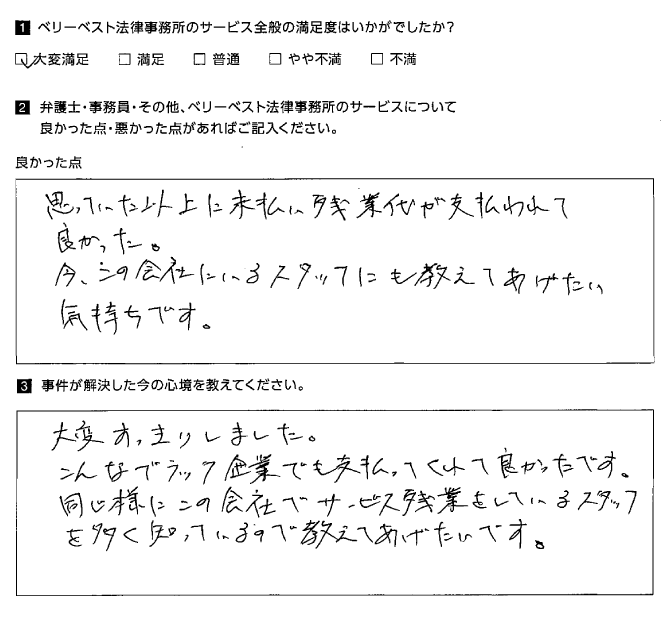 1 ベリーベスト法律事務所のサービス全般の満足度はいかがでしたか?
☑大変満足 □ 満足 □ 普通 □ やや不満 □ 不満
2 弁護士・事務員・その他、ベリーベスト法律事務所のサービスについて
良かった点・悪かった点があればご記入ください。
良かった点
思っていた以上に未払い残業代が支払われて
良かった。
今、この会社にいるスタッフにも教えてあげたい
気持ちです。
3 事件が解決した今の心境を教えてください。
大変すっきりしました。
こんなブラック企業でも支払ってくれて良かったです。
同じ様にこの会社でサービス残業をしているスタッフ
を多く知っているので教えてあげたいです。